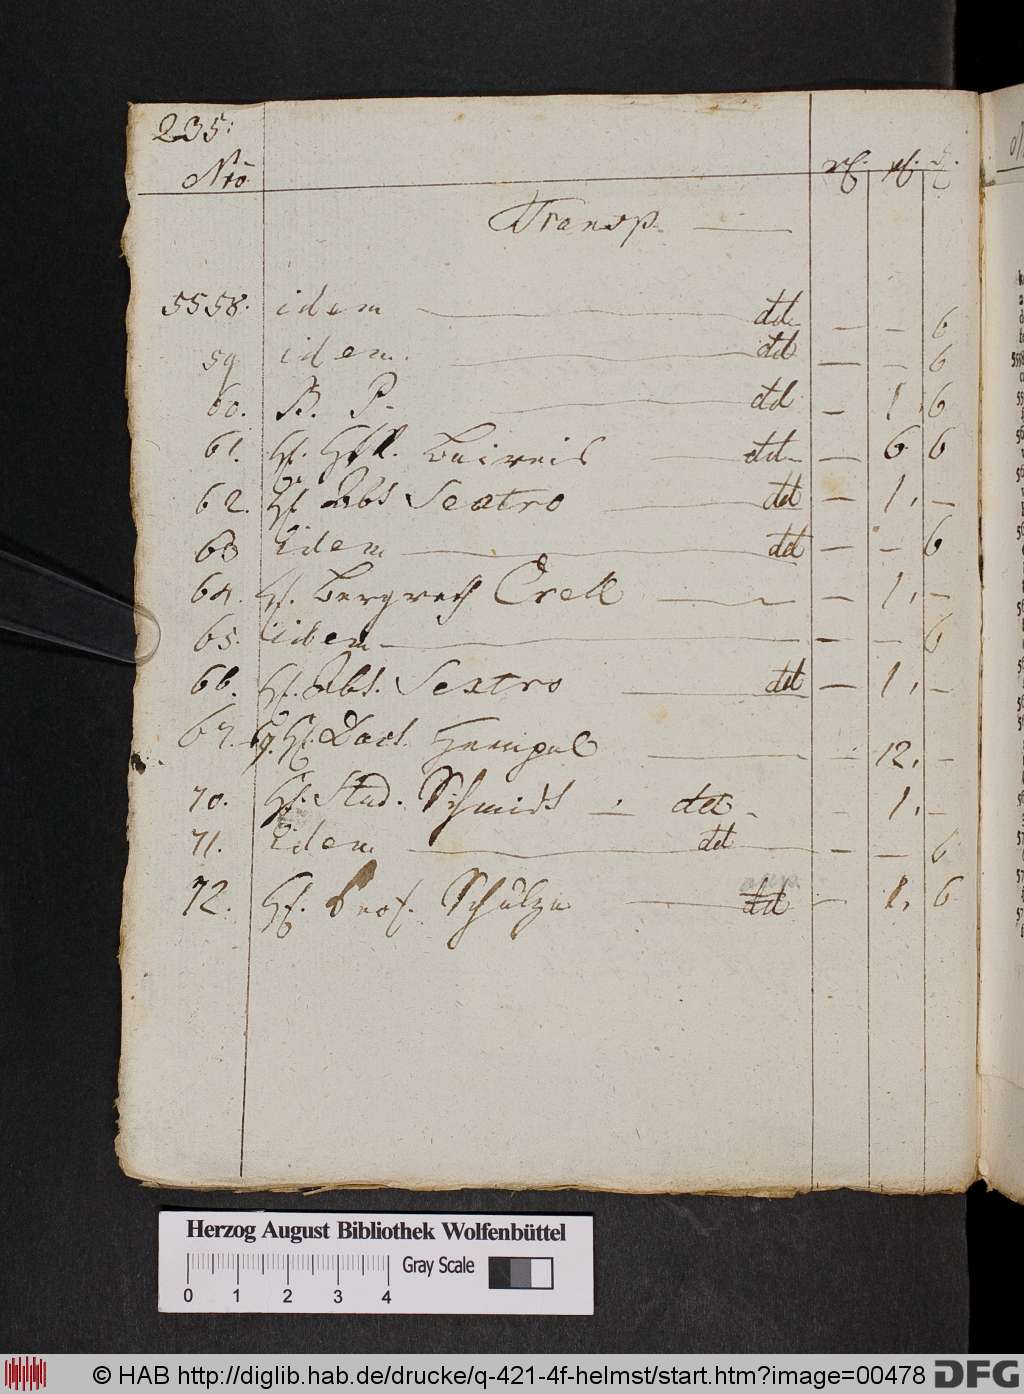 235:
Nro
Transp.
5558. idem dd - - 6
59 idem. dd - - 6
60. B. P. dd - 1 6
61. H. Hfr. Beireis dd - 6 6
62. H. Abt Sextro dd - 1, -
63 Idem dd - - 6
64. H. Bergrath Crell - 1, -
65. Idem - - 6
66. H. Abt. Sextro dd - 1, -
67. - 9. H. Doct. Hempel - 12, -
70. H. Stud. Schmidt dd - 1, -
71. Idem dd - - 6
72. H. Prof. Schulze dd - 1, 6
Herzog August Bibliothek Wolfenbüttel
Gray Scale
0 1 2 3 4
© HAB http://diglib.hab.de/drucke/q-421-4f-helmst/start.htm?image=00478
DFG